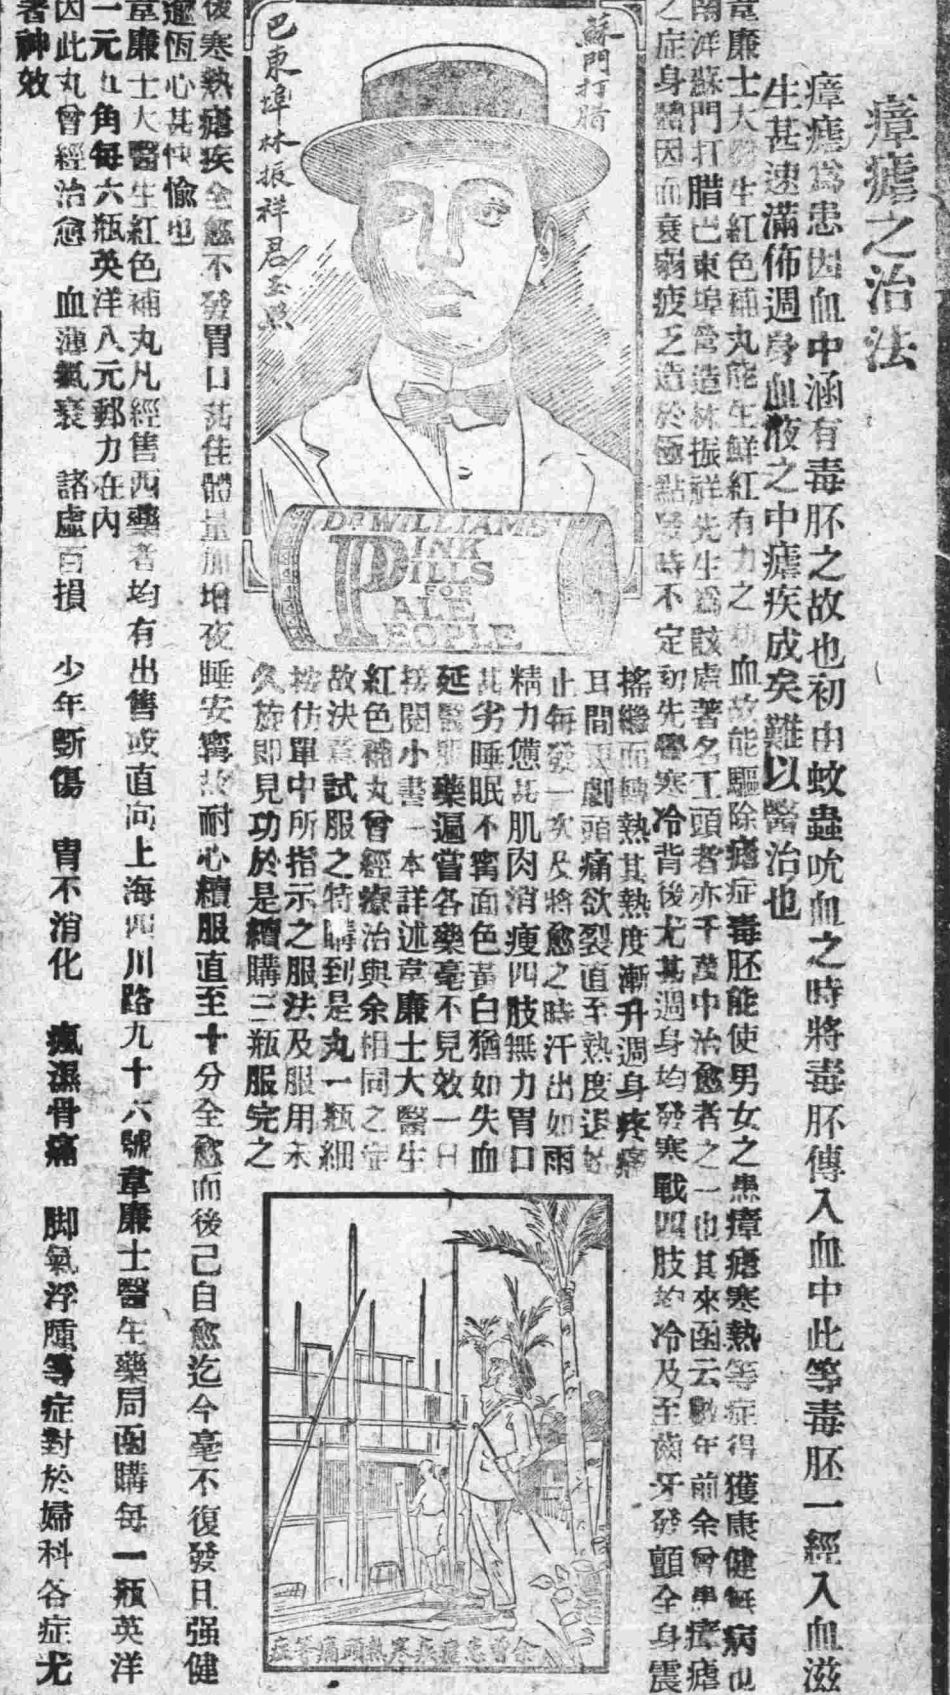 瘴瘧之治法
瘴瘧爲患因血中涵有毒胚之故也初由蚊蟲吮血之時將毒胚傳入血中此等毒胚一經入血滋
生甚速滿佈週身血液之中瘧疾成矣難以醫治也
韋廉士大醫生紅色補丸能生鮮紅有力之 血故能驅除瘧症毒胚能使男女之患瘴瘧寒熱等症得獲康健無病也
南洋蘇門打腊巴東埠營造林振祥先生爲該處著名工頭者亦千萬中治愈者之一也其來函云數年前余曾患瘴瘧
之症身體因而衰弱疲乏造於極點發時不定初先覺寒冷背後尤甚週身均發寒戰四肢均冷及至齒牙發顫全身震
搖繼而轉熱其熱度漸升週身疼痛
耳間 劇頭痛欲裂直至熱度退始
止每發一次及將愈之時汗出如雨
精力憊甚肌肉消瘦四肢無力胃口
甚劣睡眠不寗面色黃白猶如失血
延醫服藥遍嘗各藥毫不見效一日
接閱小書一本詳述韋廉士大醫生
紅色補丸曾經療治與余相同之症
故決意試服之特購到是丸一瓶細
按仿單中所指示之服法及服用未
久旋即見功於是續購三瓶服完之
後寒熱瘧疾全愈不發胃口甚佳體量加增夜睡安寗故耐心續服直至十分全愈而後已自愈迄今毫不復發且强健
逾恆心甚快愉也
韋廉士大醫生紅色補丸凡經售西藥者均有出售或直向上海四川路九十六號韋廉士醫生藥局函購每一瓶英洋
一元五角每六瓶英洋八元郵力在內
因此丸曾經治愈 血薄氣衰 諸虛百損 少年斲傷 胃不消化 瘋濕骨痛 脚氣浮腫等症對於婦科各症尤
著神效
蘇門打腊
巴東埠林振祥君玉照
DR WILLIAMS'
PINK
PILLS
FOR
PALE
PEOPLE
余曾患瘧疾寒熱頭痛等症